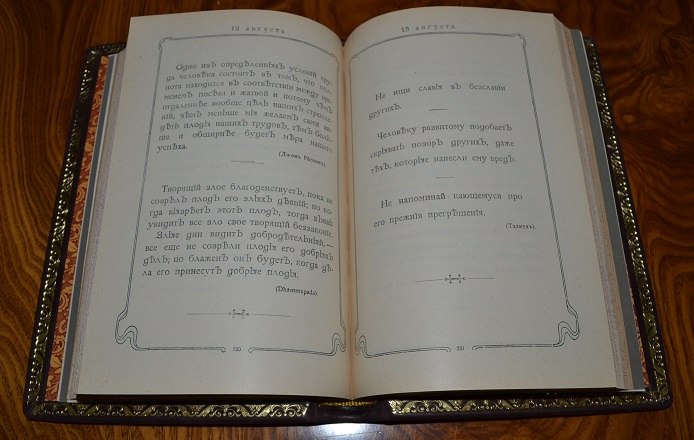 12 августа.
Одно изъ опредѣленныхъ условій тру-
да человѣка состоитъ въ томъ, что пол-
нота находится въ соотвѣтствіи между вре-
менемъ посѣва и жатвой и потому чѣмъ
отдаленнѣе вообще цѣль нашихъ стремле-
ній, чѣмъ меньше мы желаемъ сами ви-
дѣть плоды нашихъ трудовъ, тѣмъ больше
и обширнѣе будетъ мѣра нашего
успѣха.
(Джонъ Рёскинъ).
Творящій злое благоденствуетъ, пока не
созрѣлъ плодъ его злыхъ дѣяній; но ко-
гда вызрѣетъ этотъ плодъ, тогда
увидитъ все зло свое творящій беззаконіе.
Злые дни видитъ добродѣтельный,—
все еще не созрѣли плоды его добрыхъ
дѣлъ; но блаженъ онъ будетъ, когда дѣ-
ла его принесутъ добрые плоды.
(Dhammapada).
230
13 августа.
Не ищи славы въ безславіи
другихъ.
Человѣку развитому подобаетъ
скрывать позоръ другихъ, даже
тѣхъ, которые нанесли ему вредъ.
Не напоминай кающемуся про
его прежнія прегрѣшенія.
(Талмудъ).
231